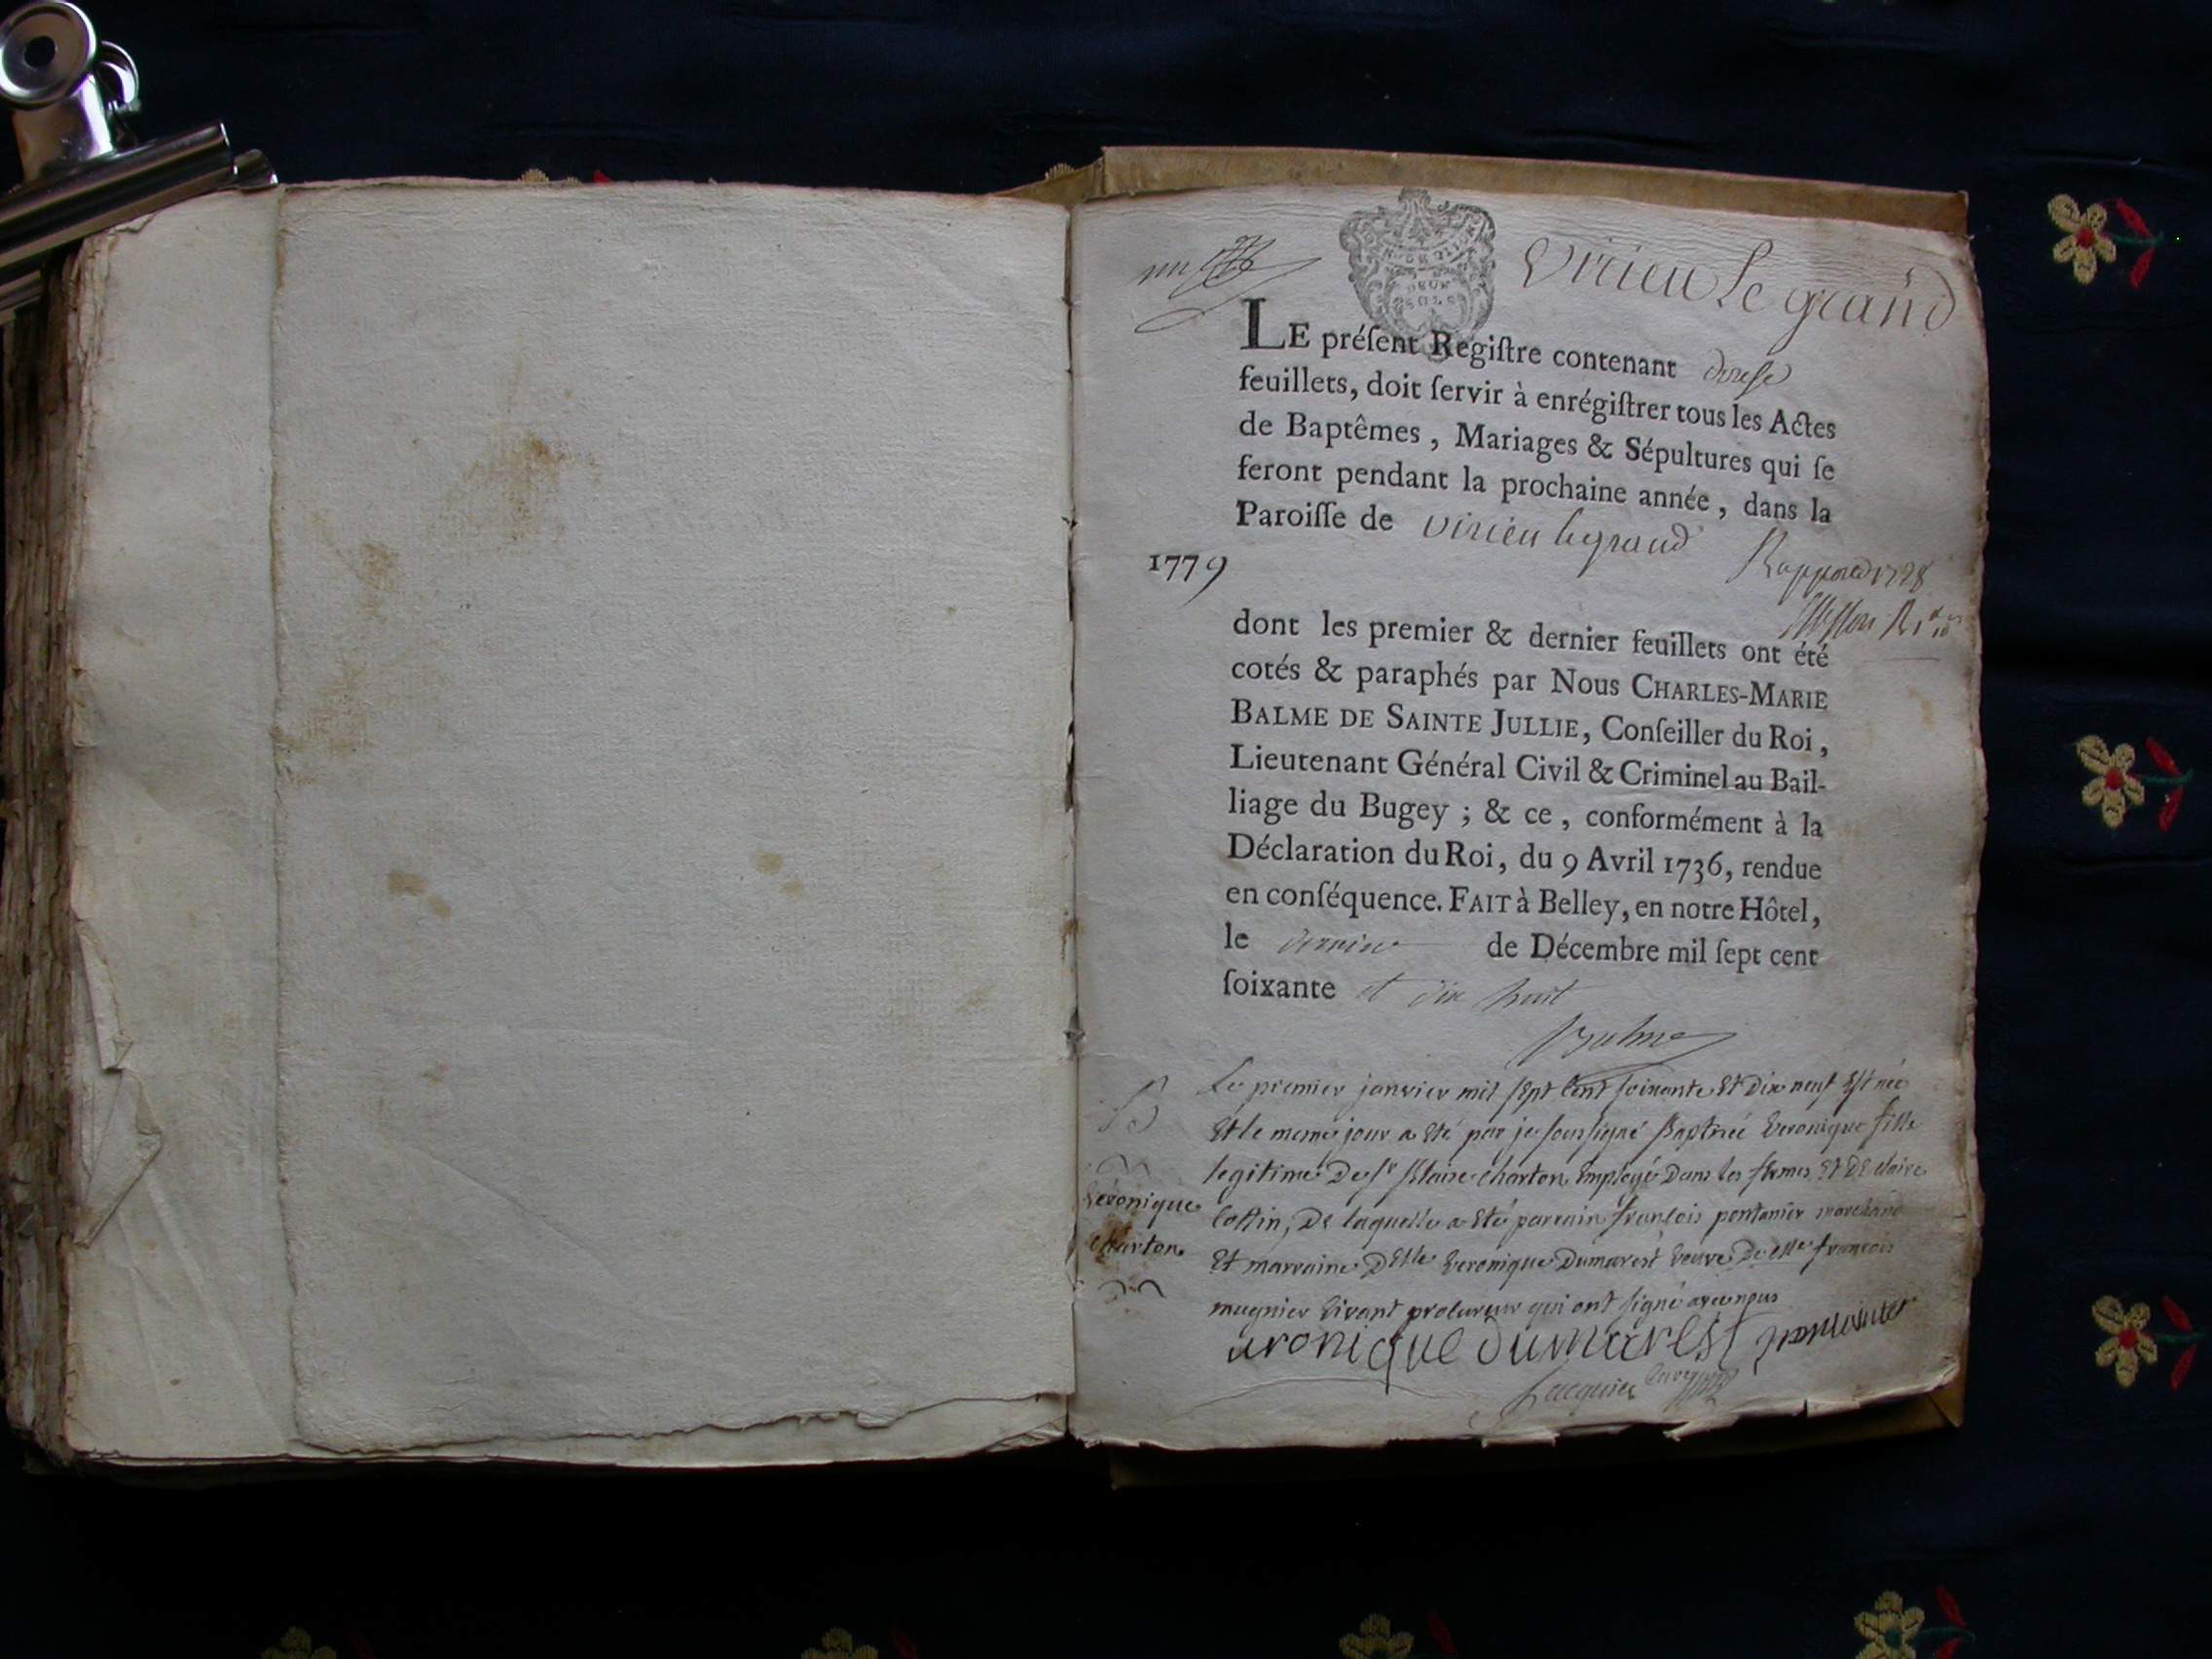 un
DEUX
SOLS
Virieu Le grand
LE préſent Regiſtre contenant douse
feuillets, doit ſervir à enrégiſtrer tous les Actes
de Baptêmes, Mariages & Sépultures qui ſe
feront pendant la prochaine année, dans la
Paroiſſe de virieu legrand
1779
dont les premier & dernier feuillets ont été
cotés & paraphés par Nous CHARLES-MARIE
BALME DE SAINTE JULLIE, Conſeiller du Roi,
Lieutenant Général Civil & Criminel au Bail-
liage du Bugey ; & ce, conformément à la
Déclaration du Roi, du 9 Avril 1736, rendue
en conſéquence. FAIT à Belley, en notre Hôtel,
le dernier de Décembre mil ſept cent
ſoixante et dix huit
Balme
B
Veronique
Charton
Le premier janvier mil sept cent soixante Et Dix neuf Est née
Et le meme jour a Eté par je soussigné Baptisée Veronique fille
legitime De Sr Blaise Charton Employé Dans les fermes Et De claire
Cottin, De laquelle a Eté parrain françois pontanier marchand
Et marraine Delle Veronique Dumarest veuve De Me françois
mugnier vivant procureur qui ont signé avec nous
veronique dumarest
Jacquier curé